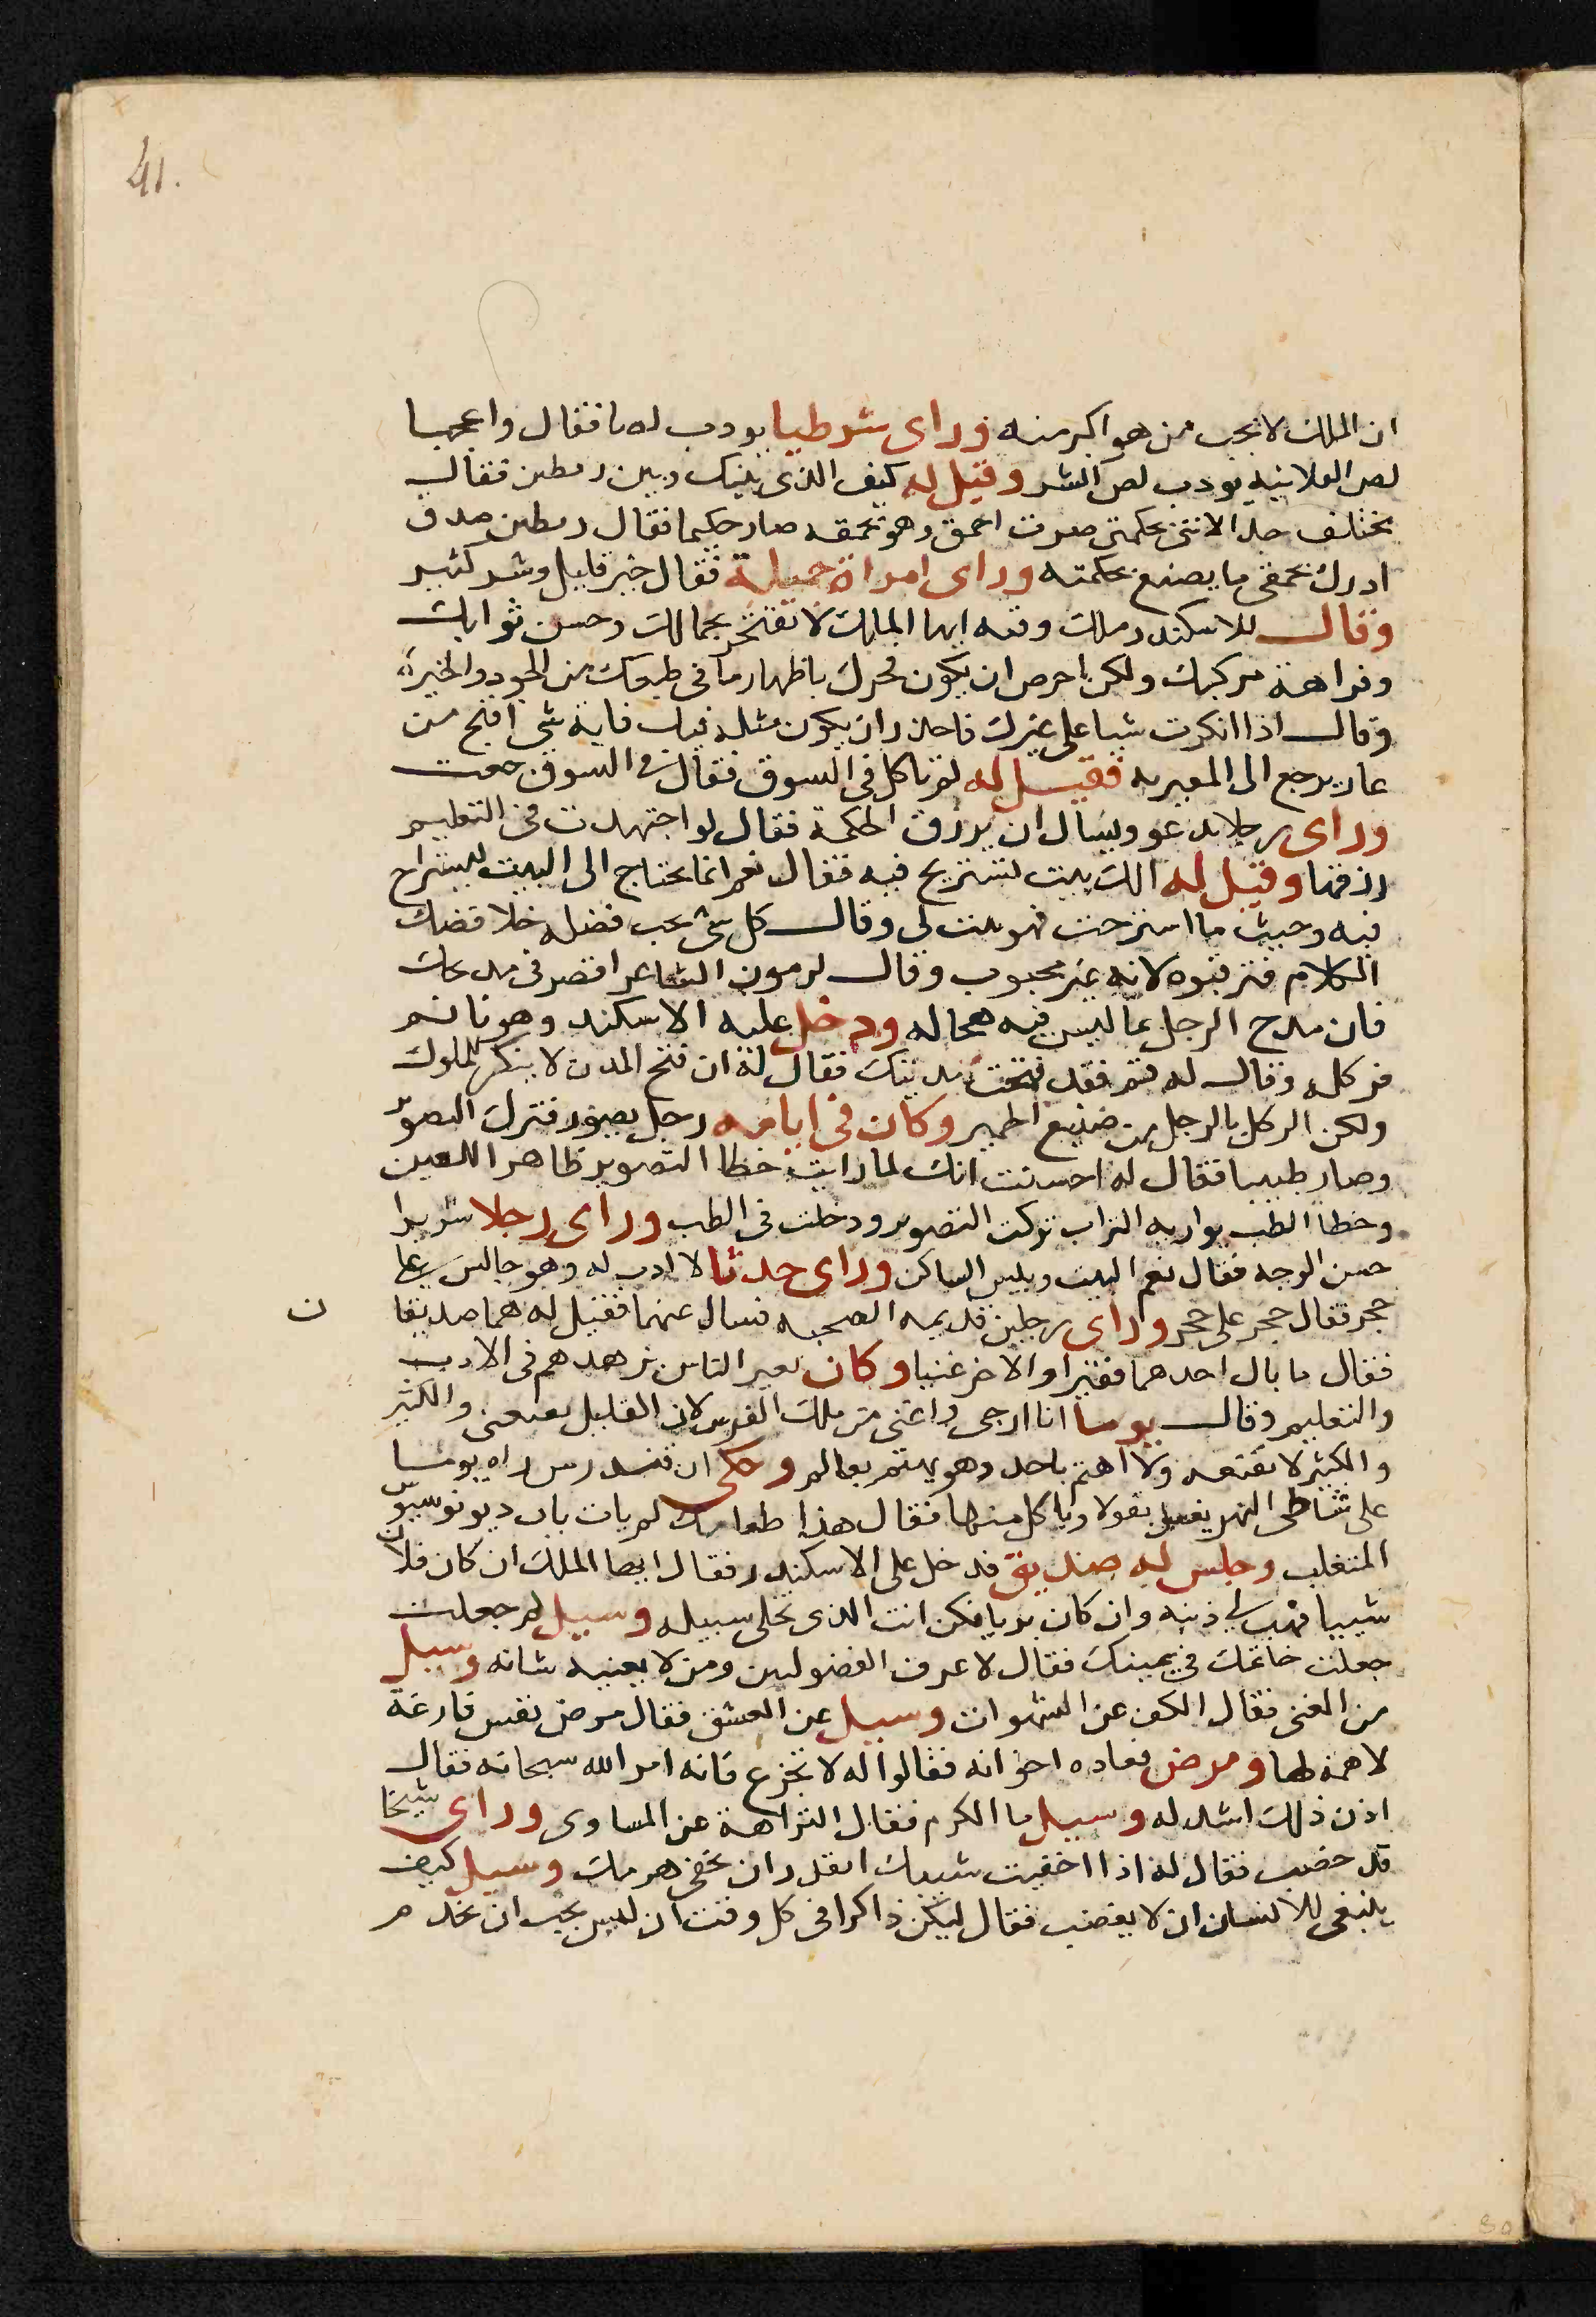 41.
ان الملك لا يحب من هو اكبر منه وراى شرطيا يودب لصا فقال واعجبا
لص العلانيه يودب لص السر وقيل له كيف الذى بينك وبين رمطين فقال
مختلف جدا لاننى بحكمتى صرت احمق وهو بحمقه صار حكيما فقال رمطين صدق
ادرك بحمقى ما يصنع بحكمته وراى امراة جميلة فقال خير قليل وشر كثير
وقال للاسكندر ملك وقته ايها الملك لا تفتخر بجمالك وحسن ثوابك
وفراهة مركبك ولكن احرص ان يكون فخرك باظهار ما فى طبعك من الجود والخيرة
وقال اذا انكرت شيا على غيرك فاحذر ان يكون مثله فيك فاية شى اقبح من
عار يرجع الى المعير به فقيل له لم تاكل فى السوق فقال فى السوق جعت
وراى رجلا يدعو ويسال ان يرزق الحكمة فقال لو اجتهدت فى التعليم
رزقتها وقيل له الك بيت تستريح فيه فقال نعم انما يحتاج الى البيت ليستراح
فيه وحيث ما استرحت فهو بيت لى وقال كل شى يحب فضله خلا فضلك
الكلام فترقبوه لانه غير محبوب وقال لرمون الشاعر اقصر فى مدحك
فان مدح الرجل بما ليس فيه هجا له ودخل عليه الاسكندر وهو نائم
فركله وقال له قم فقد فتحت مدينتك فقال له ان فتح المدن لا ينكر للملوك
ولكن الركل بالرجل من صنيع الحمير وكان فى ايامه رجل يصور فترك التصوير
وصار طبيبا فقال له احسنت انك لما رايت خطا التصوير ظاهرا للعين
وخطا الطب يواريه التراب تركت التصوير ودخلت فى الطب وراى رجلا شريرا
حسن الوجه فقال نعم البيت وبيس الساكن وراى حدثا لا ادب له وهو جالس على
حجر فقال حجر على حجر وراى رجلين قديمه الصحبه فسال عنهما فقيل له هما صديقا
ن
فقال ما بال احدهما فقيرا والاخر غنيا وكان يعير الناس بزهدهم فى الادب
والتعليم وقال يوما انا ارجى واغنى من ملك الفرس لان القليل يقنعنى والكثير
والكثير لا يقنعه ولا اهتم باحد وهو يهتم بعالم وحكى ان فندرس راه يوما
على شاطى النهر يغسل بقولا وياكل منها فقال هذا طعامك لم يات باب ديونوسيوس
المتغلب وجلس له صديق فدخل على الاسكندر فقال ايها الملك ان كان فلان
شيبا فهب لى ذنبه وان كان بريا فكن انت الذى تخلى سبيله وسيل لم جعلت
جعلت خاتمك فى يمينك فقال لاعرف الفضوليين ومن لا يعنيه شانه وسيل
من الغنى فقال الكف عن الشهوات وسيل عن العشق فقال مرض نفس فارغة
لا همة لها ومرض فعاده اخوانه فقالوا له لا تجزع فانه امر الله سبحانه فقال
اذن ذلك اشد له وسيل ما الكرم فقال النزاهة عن المساوى وراى شيخا
قد خضب فقال له اذا اخفيت شيبك اتقدر ان تخفى هرمك وسيل كيف
ينبغى للانسان ان لا يغضب فقال ليكن ذاكرا فى كل وقت ان ليس يجب ان يخدم